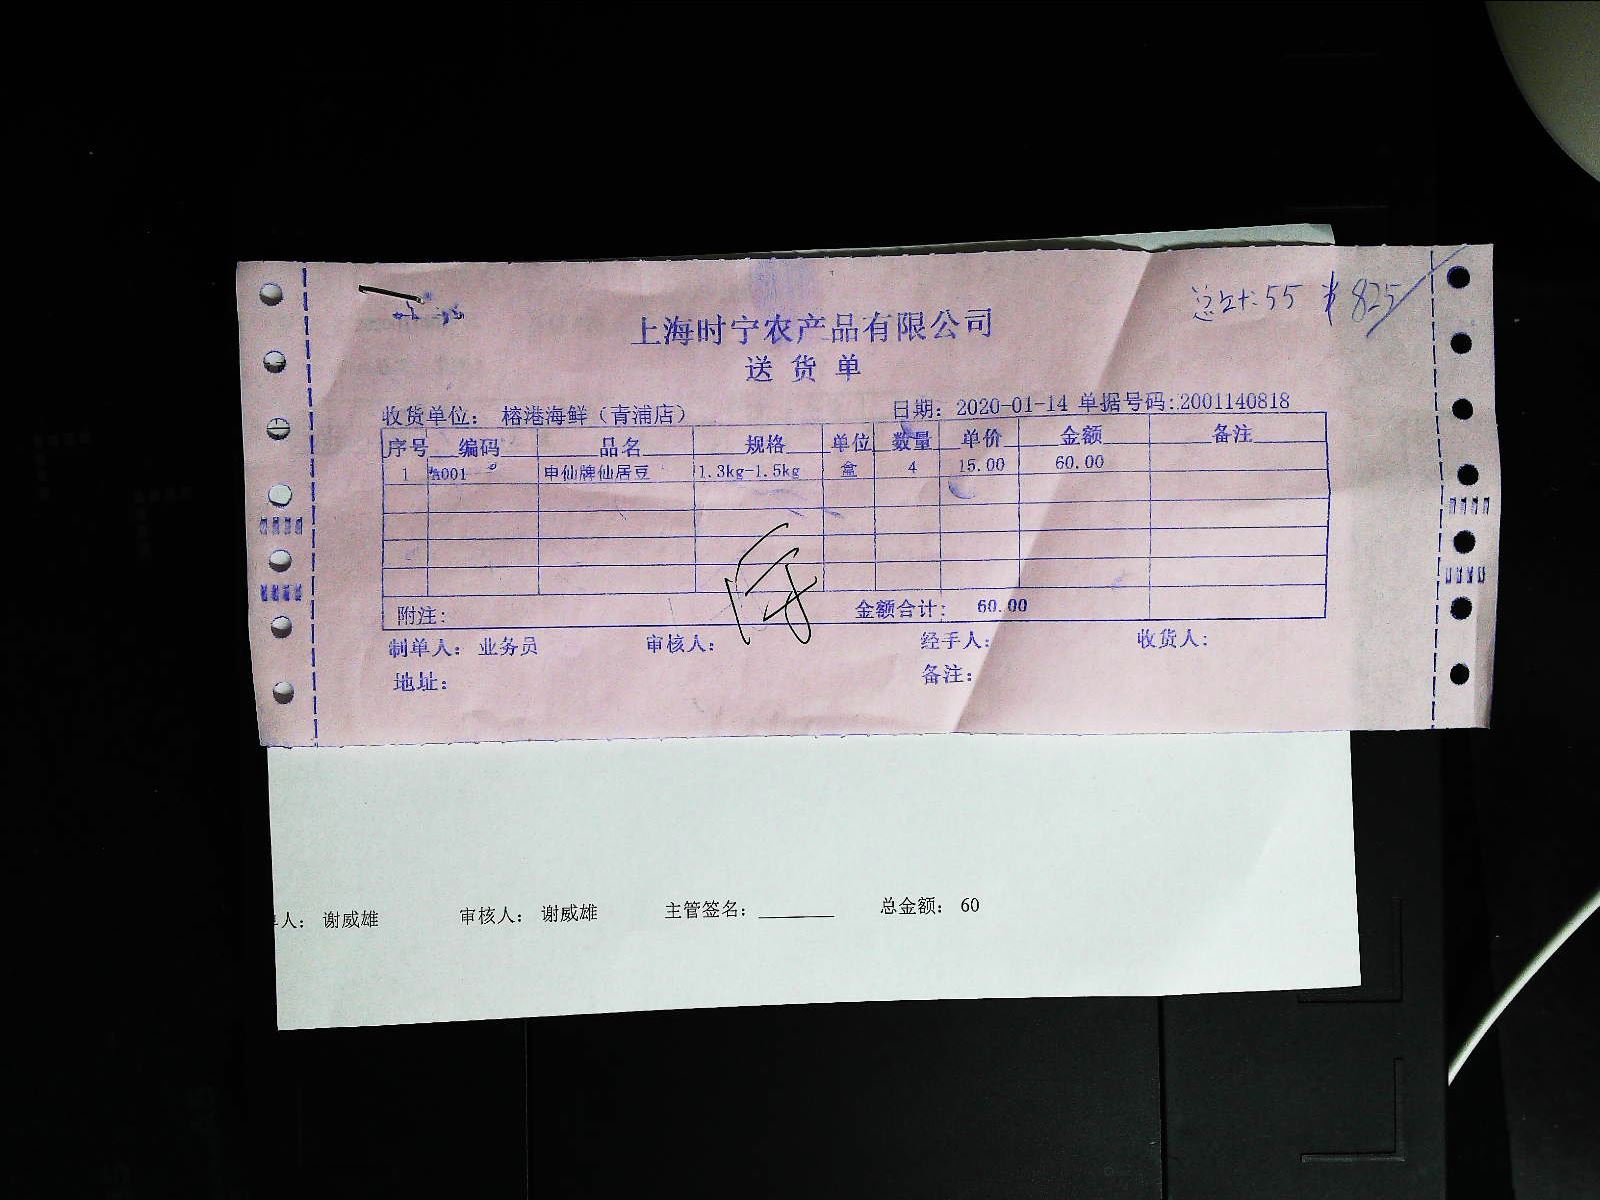 总计:55 ¥825
上海时宁农产品有限公司
送货单
收货单位: 榕港海鲜(青浦店) 日期: 2020-01-14 单据号码:2001140818
序号 编码 品名 规格 单位 数量 单价 金额 备注
1 A001 申仙牌仙居豆 1.3kg-1.5kg 盒 4 15.00 60.00
附注: 金额合计: 60.00
制单人: 业务员 审核人: 经手人: 收货人:
地址: 备注:
人: 谢威雄 审核人: 谢威雄 主管签名: 总金额: 60